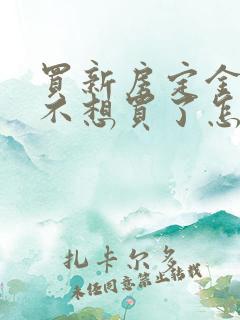 買新房定金
不想買了怎
扎卡尔多
未经同意禁止转载